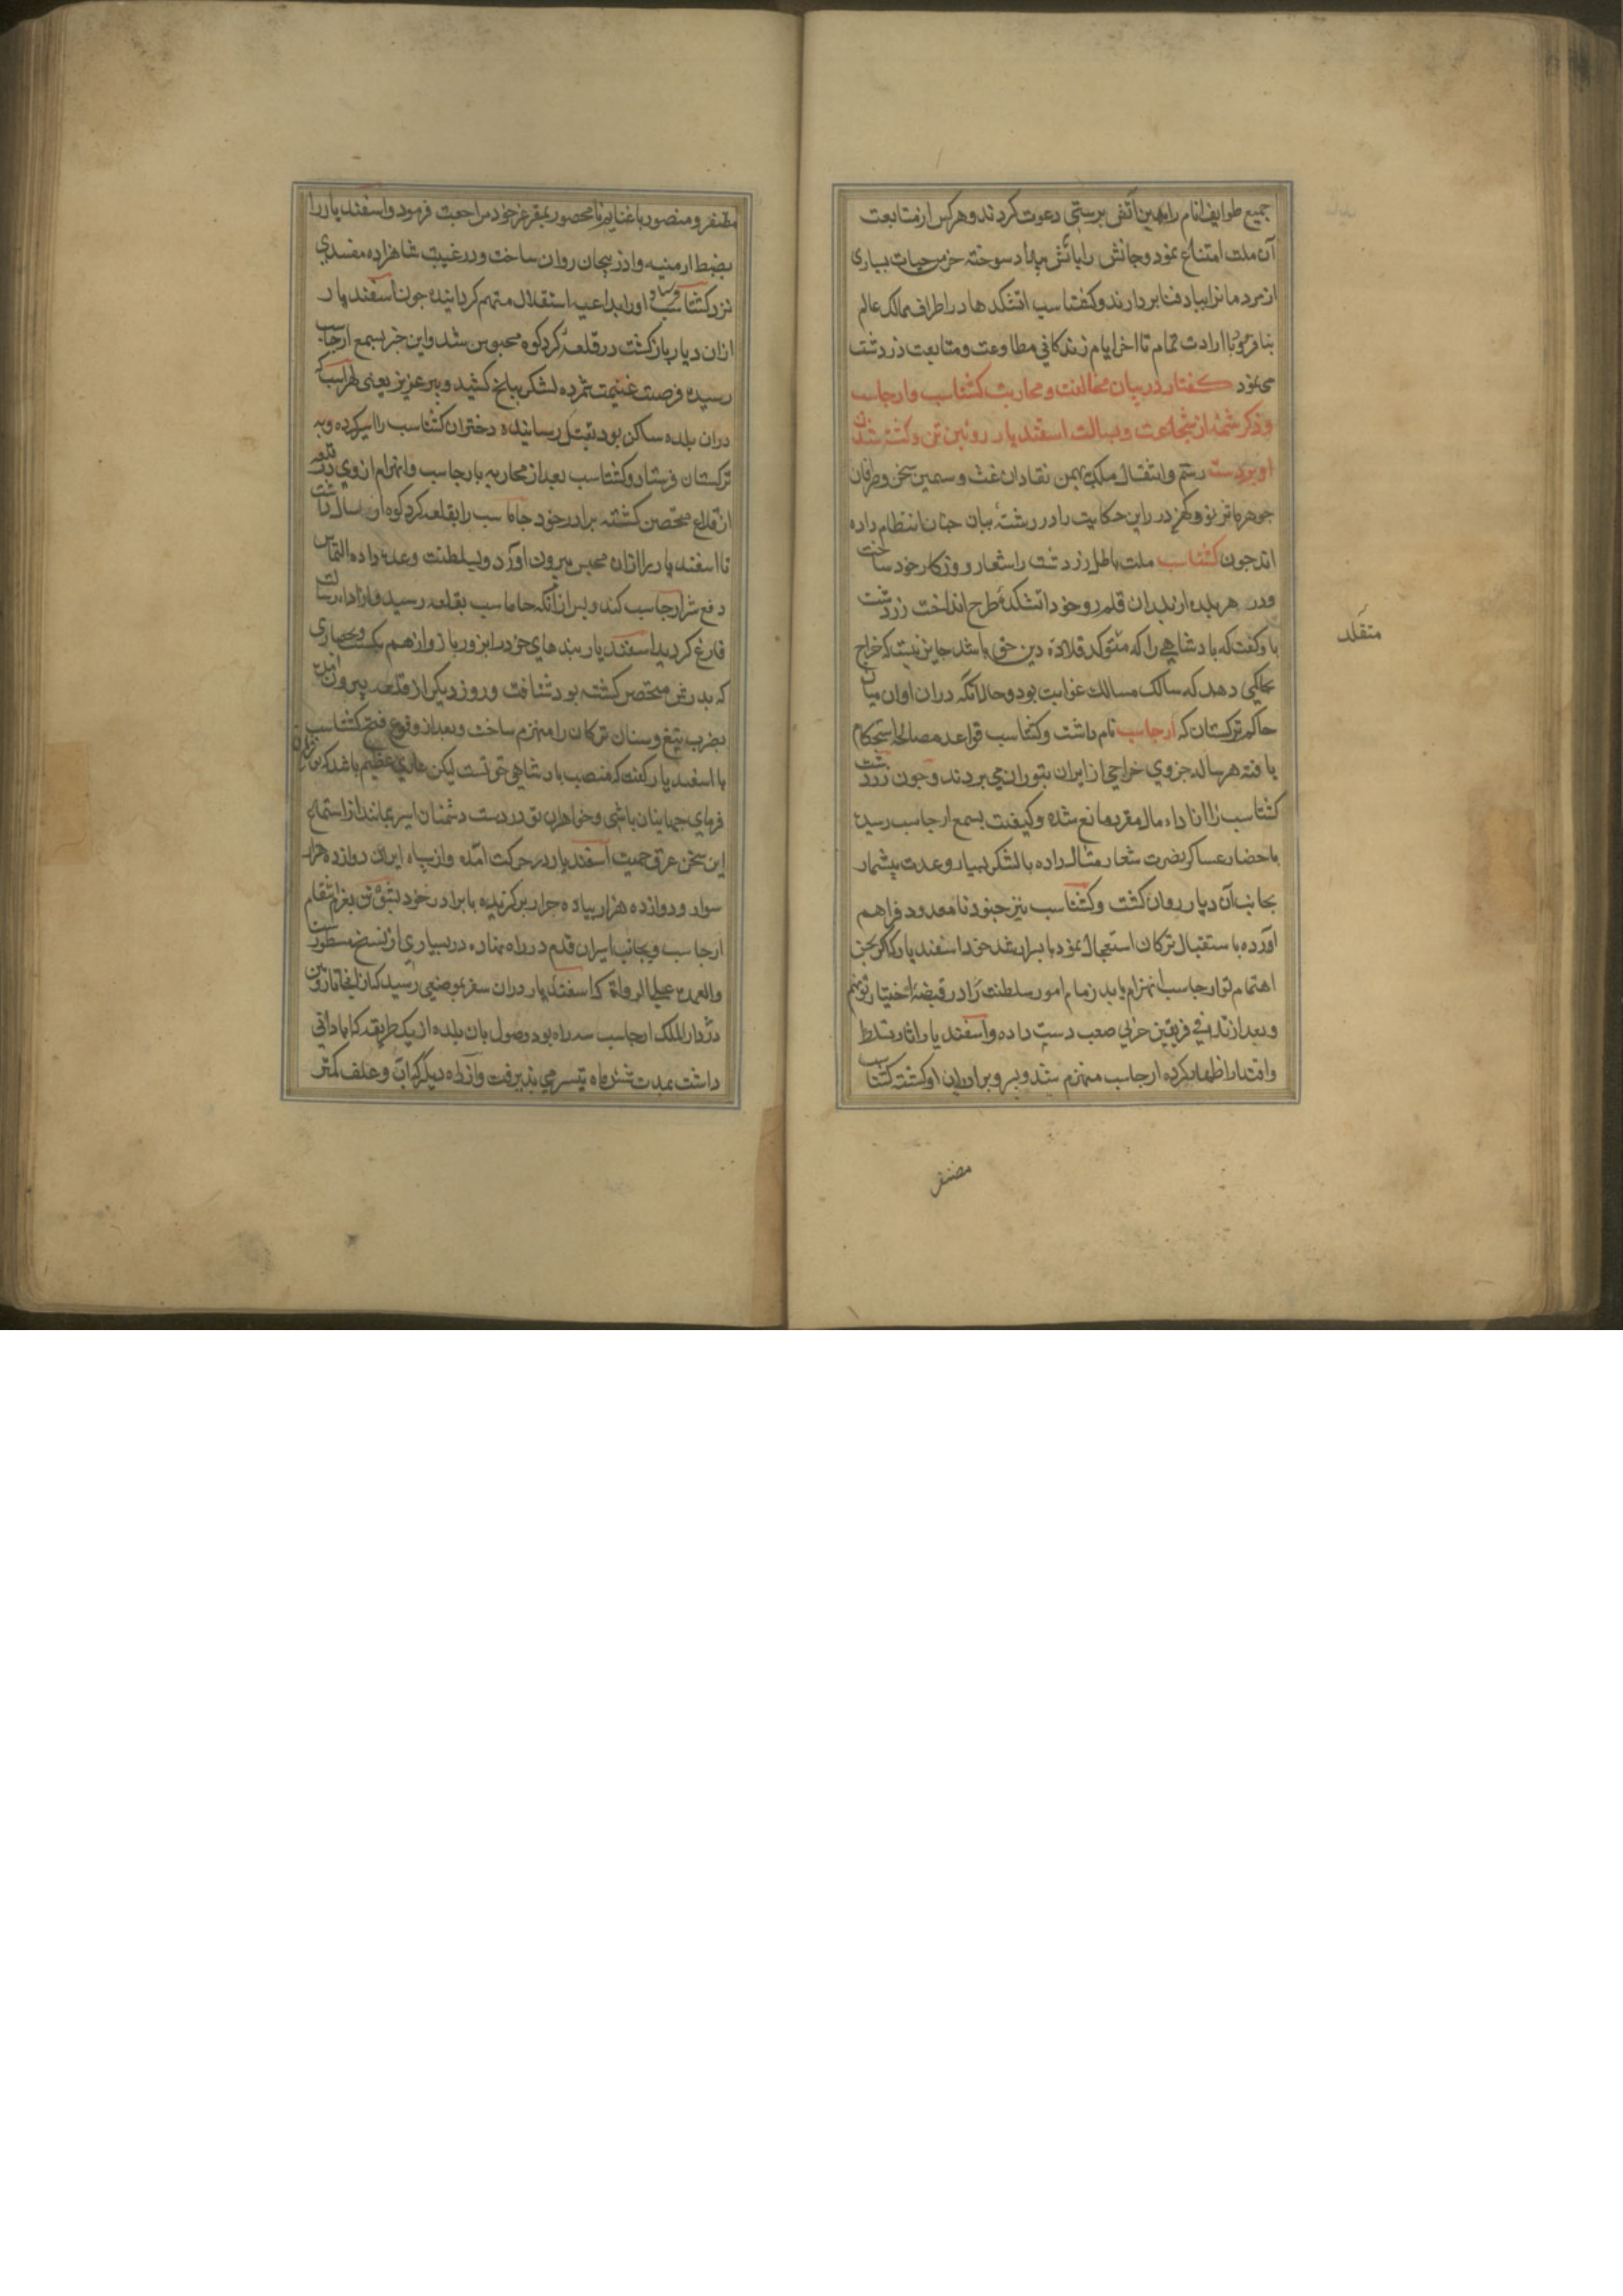 جمیع طوایف انام را بدین آتش پرستی دعوت کردند و هرکس از متابعت
آن ملت امتناع نمود و جانش را باتش بیداد سوخته خرمن حیات بسیاری
از مردمانرا بباد فنا بردادند و کشتاسب اتشکدها در اطراف ممالک عالم
بنا فرموده با ارادت تمام تا اخر ایام زندکانی مطاوعت و متابعت زردشت
می نمود کفتار در بیان مخالفت و محاربت کشتاسب و ارجاسب
و ذکر شمهٔ از شجاعت و بسالت اسفندیار روئین تن و کشته شدن
او بر دست رستم و انتقال ملک ببهمن نقادان غث و سمین سخن و صرافان
جوهر ... نو و کهن درر این حکایت را در رشتهٔ بیان چنان انتظام داده
اند جون کشتاسب ملت باطل زردشت را شعار روزکار خود ساخت
و در هر بلده از بلدان قلمرو خود اتشکدهٔ طرح انداخت زردشت
با و کفت که بادشاهی را که متقلد قلادهٔ دین حق باشد جایز نیست که خراج
بحاکمی دهد که سالک مسالک غوایت بود و حال آنکه دران اوان میان
حاکم ترکستان که ارجاسب نام داشت و کشتاسب قواعد مصالحه استحکام
یافته هر ساله جزوی خراجی از ایران بتوران می بردند و جون زردشت
کشتاسب را از اداء مال مقرر مانع شده و کیفیت بسمع ارجاسب رسید
باحضار عساکر نصرت شعار مثال داده با لشکر بسیار و عدت بیشمار
بجانب آن دیار روان کشت و کشتاسب نیز جنود نامعدود فراهم
آورده باستقبال ترکان استعجال نمود با بسر ارشد خود اسفندیار که اکر بحسن
اهتمام تو ارجاسب انهزام یابد زمام امور سلطنت را در قبضهٔ اختیار تو نهم
و بعد از تلاقی فریقین حربی صعب دست داده و اسفندیار اثار تسلط
و اقتدار اظهار کرده ارجاسب منهزم شد و بسر و برادران او کشته کشتاسب
متقلد
مظفر
مظفر و منصور با غنایم نامحصور بمقر عز خود مراجعت فرمود و اسفندیار را
بضبط ارمنیه و اذربیجان روان ساخت و در غیبت شاهزاده مفسدی
نزد کشتاسب اورا بداعیهٔ استقلال متهم کردانیده جون اسفندیار
ازان دیار بازکشت در قلعهٔ کردکوه محبوس شد و این خبر بسمع ارجاسب
رسیده فرصت غنیمت شمرده لشکر ببلخ کشید و پیر عزیز یعنی لهراسب که
دران بلده ساکن بود بقتل رسانیده دختران کشتاسب را اسیر کرده و به
ترکستان فرستاد و کشتاسب بعد از محاربه با ارجاسب و انهزام از وی در قلعه
از قلاع متحصن کشته برادر خود جاماسب را بقلعه کردکوه ارسال داشت
تا اسفندیار را ازان محبس بیرون اورد و بسلطنت وعده داده التماس
دفع شر ارجاسب کند و بس از آنکه جاماسب بقلعه رسید و از اداء رسالت
فارغ کردید اسفندیار بندهای خود را بزور بازو از هم بکست و بحصاری
که بدرش متحصن کشته بود شتافت و روز دیکر از قلعه بیرون آمده
بضرب تیغ و سنان ترکان را منهزم ساخت و بعد از وقوع فتح کشتاسب
با اسفندیار کفت که منصب بادشاهی حق تست لیکن عاری عظیم باشد که تو فرمان
فرمای جهانیان باشی و خواهران تو در دست دشمنان اسیر بمانند از استماع
این سخن عرق حمیت اسفندیار در حرکت امده و از سپاه ایران دوازده هزار
سوار و دوازده هزار پیاده جرار برکزیده با برادر خود بشوتن بعزم انتقام
ارجاسب و بجانب ایران قدم در راه نهاده در بسیاری از نسخ مسطور است
والعهدة علی الرواة که اسفندیار دران سفر بموضعی رسید که از انجا تا روئین
دژ دار الملک ارجاسب سه راه بود وصول بان بلده از یک طریقه که ابادانی
داشت بمدت شش ماه تیسر می پذیرفت و از راه دیکر که آب و علف کمتر